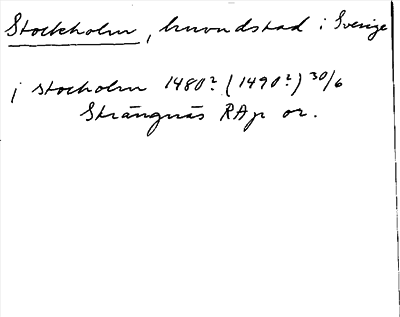 Stockholm, huvudstad i Sverige
i stocholm 1480? (1490?) 30/6
Strängnäs RAp or.